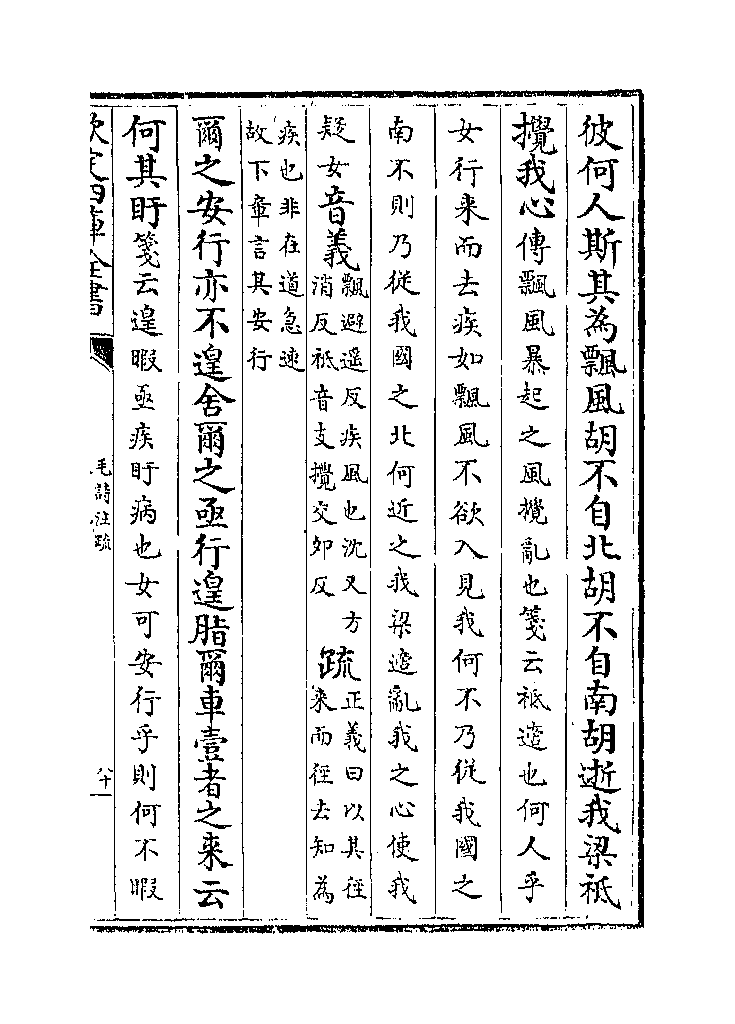 彼何人斯其為飄風胡不自北胡不自南胡逝我梁祗
攪我心傳飄風暴起之風攪亂也箋云祗適也何人乎
女行来而去疾如飄風不欲入見我何不乃從我國之
南不則乃從我國之北何近之我梁適亂我之心使我
疑女音義飄避遥反疾風也沈又方
消反祗音支攪交夘反疏正義曰以其徑
来而徑去知為
疾也非在道急速
故下章言其安行
爾之安行亦不遑舍爾之亟行遑脂爾車壹者之来云
何其盱箋云遑暇亟疾盱病也女可安行乎則何不暇
欽定四庫全書
毛詩注疏
八十一